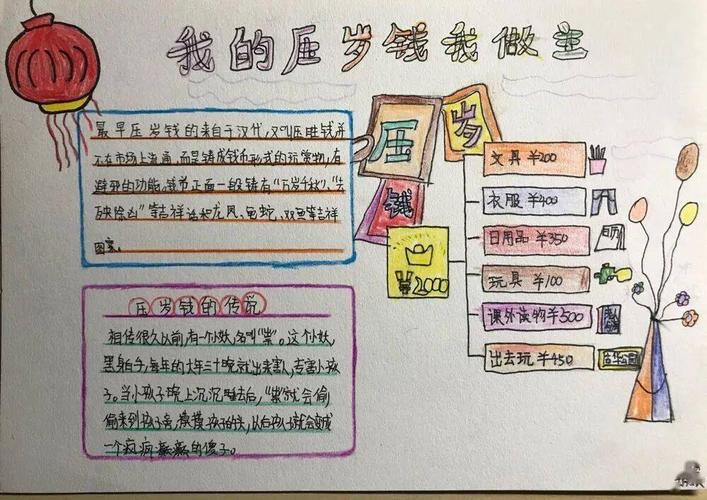 我的压岁钱我做主
最早压岁钱的来自于汉代,又叫压胜钱并
不在市场上流通,而是铸成钱币形式的玩赏物,有
避邪的功能,钱币正面一段铸有"万岁千秋","去
殃除凶"等吉祥话和龙凤、龟蛇、双鱼等吉祥
图案。
压岁
钱
¥2000
文具¥200
衣服¥400
日用品¥350
玩具¥100
课外读物¥500
出去玩¥450
压岁钱的传说
相传很久以前,有一个小妖,名叫"祟"。这个小妖
黑身白手,每年的大年三十晚就出来害人,专害小孩
子。当小孩子晚上沉沉睡去后,"祟"就会偷
偷来到孩子旁,摸孩子的头,孩子就会变成
一个疯疯癫癫的傻子。